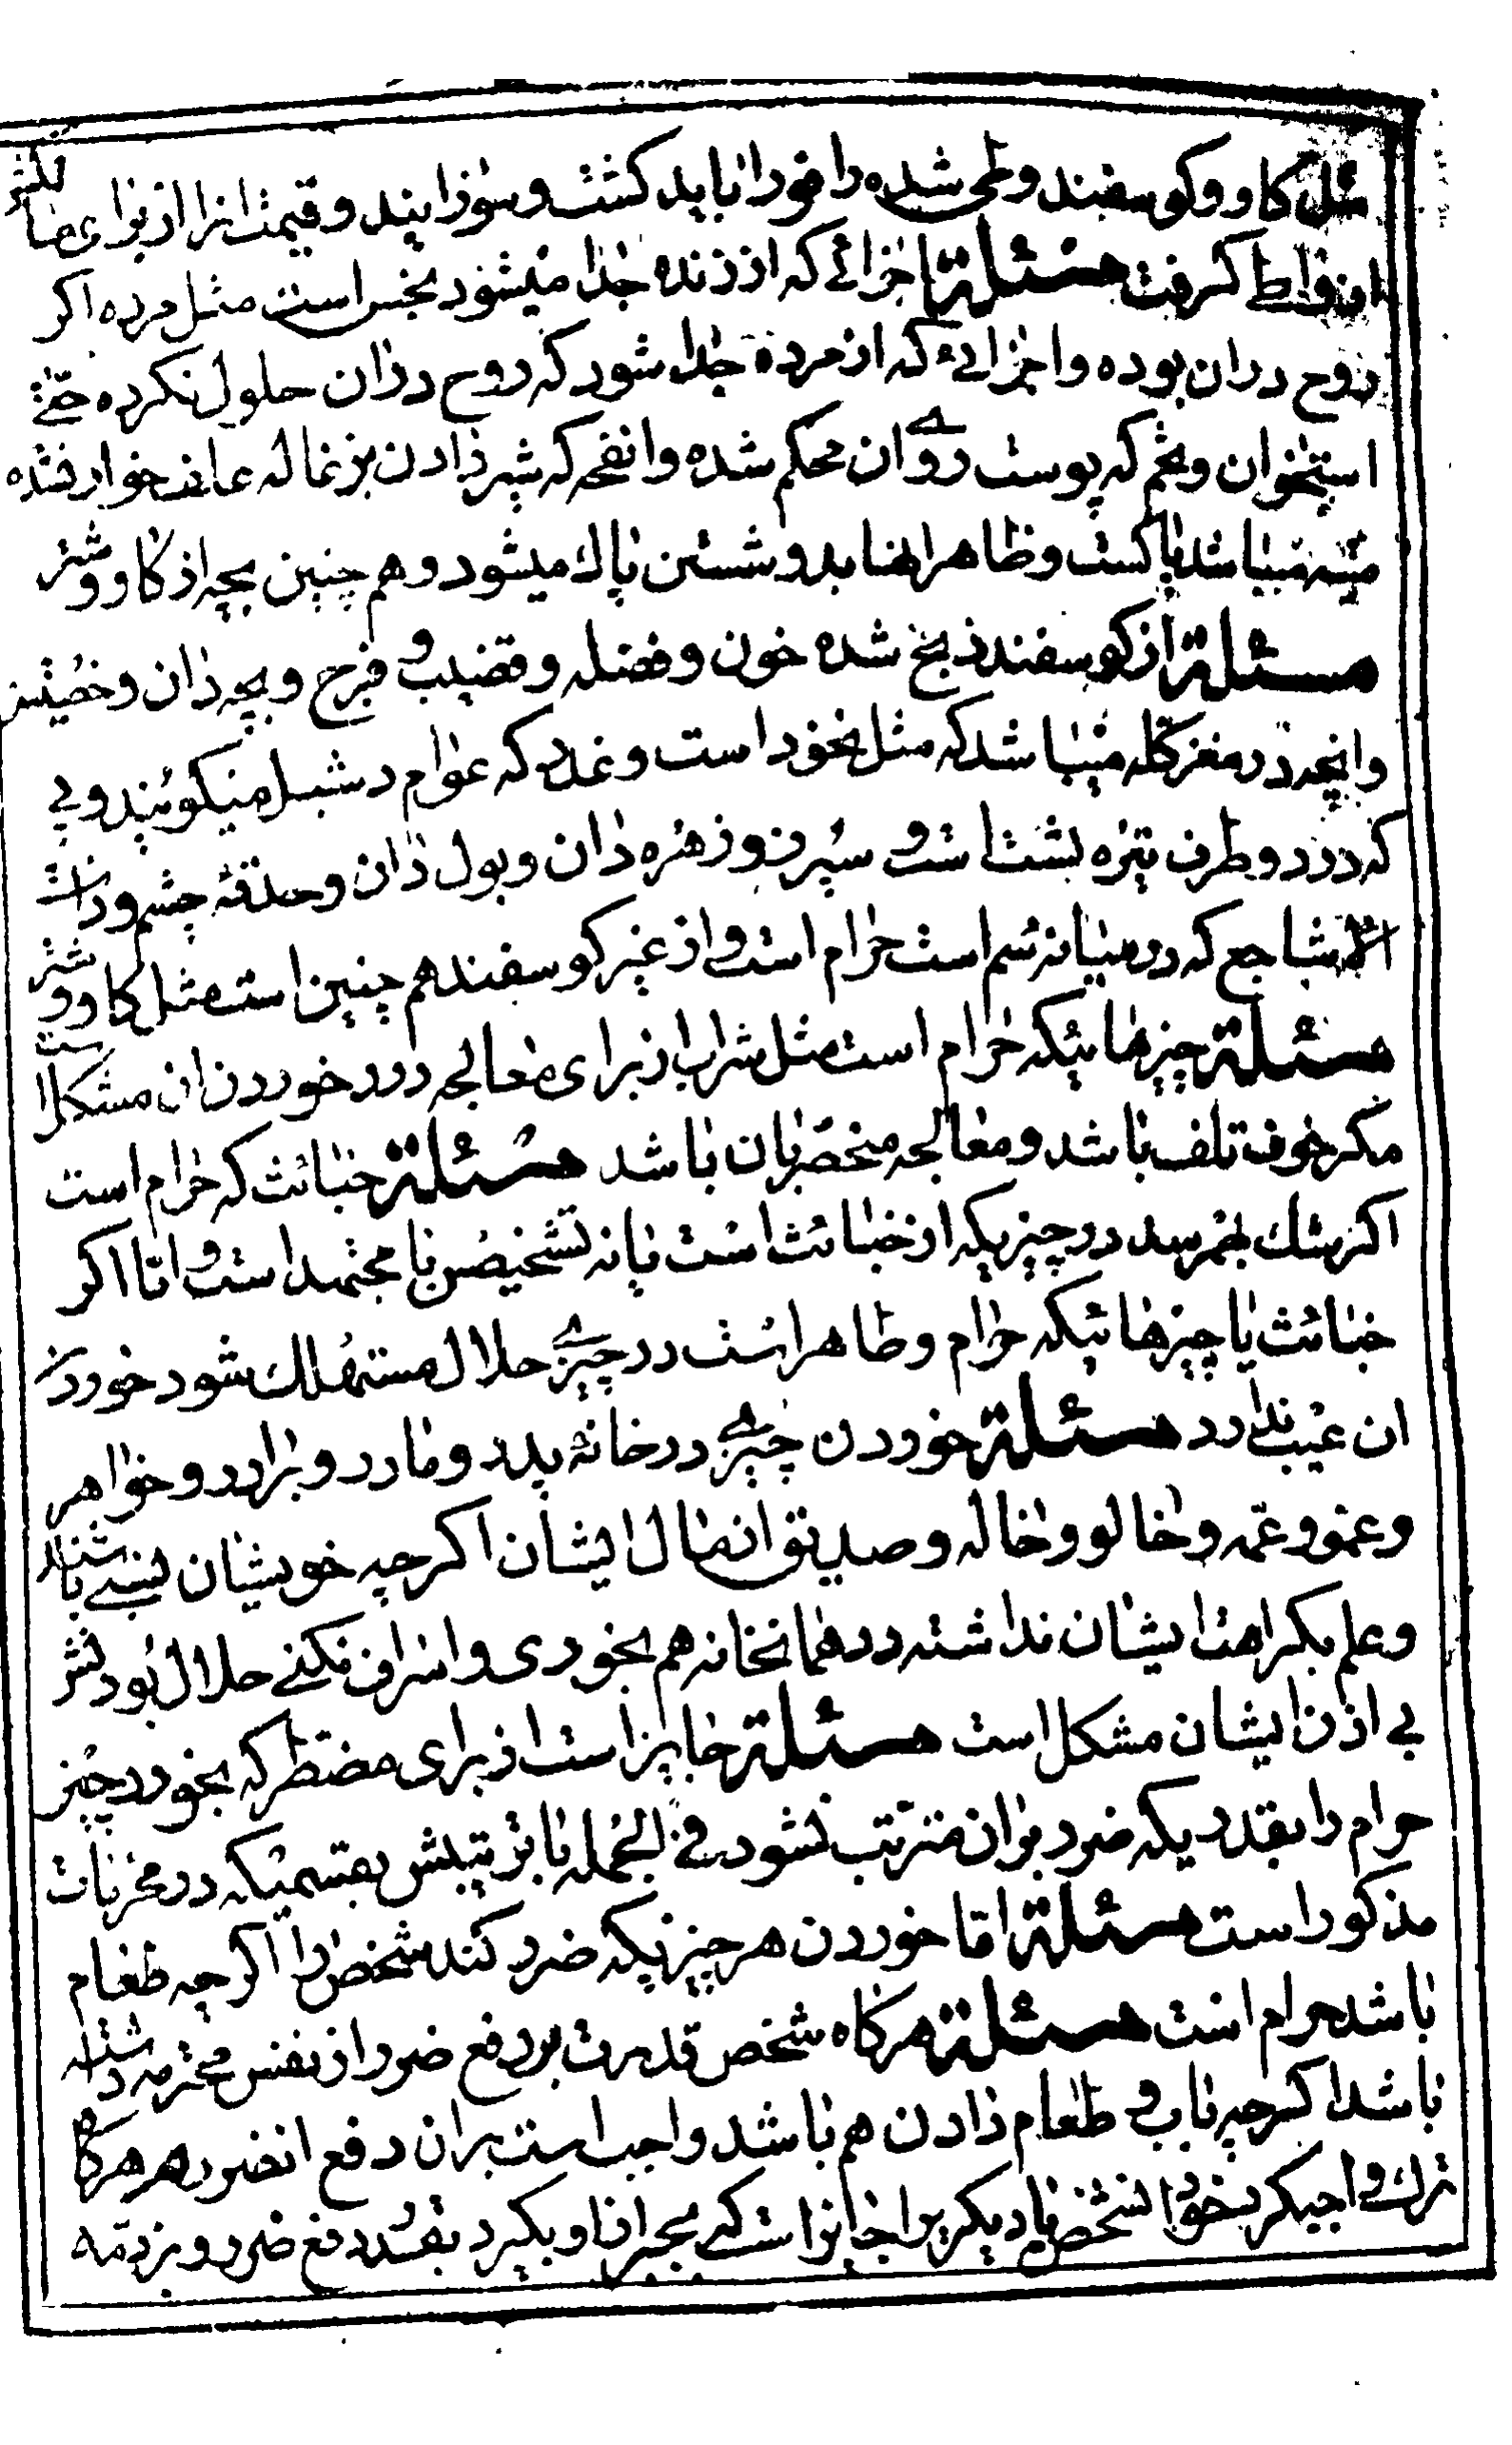 مثل گاو و گوسفند وطی شده را فورا باید کشت و سوزانید و قیمت انرا از برای صاحبش
از واطی گرفت مسئلة اجزائے که از زنده جدا میشود نجس است مثل مرده اگر
روح دران بوده و اجزائے که از مرده جدا شود که روح دران حلول نکرده حتّی
استخوان و تخم که پوست روے ان محکم شده و انفحه که شیردان بزغاله علف خوار نشده
میته میباشد پاکست و ظاهر انها بدو شستن پاك میشود و هم چنین بچه از گاو و شتر
مسئلة از گوسفند ذبح شده خون و فضله و قضیب و فرج و بچه دان و خصیتین
و انچه در مغز کله میباشد که مثل نخود است و غدد که عوام دشبل میگویند و پی
که در دو طرف تیره پشت است و سپرز و زهره دان و بول دان و حدقهٔ چشم و ذات
الاشاجع که در میانه سم است حرام است و از غیر گوسفند هم چنین است مثل گاو و شتر
مسئلة چیزهائیکه حرام است مثل شراب از برای معالجه درد خوردن ان مشکل است
مگر خوف تلف باشد و معالجه منحصر بان باشد مسئلة خبائث که حرام است
اگر شك بهم رسد در چیزیکه از خبائث است یا نه تشخیص با مجتهد است و امّا اگر
خبائث یا چیزهائیکه حرام و طاهر است در چیزے حلال مستهلك شود خوردن
ان عیب ندارد مسئلة خوردن چیزے در خانهٔ پدر و مادر و برادر و خواهر
و عمو و عمّه و خالو و خاله و صدیق از مال ایشان اگرچه خویشان نسبے باشند
و علم بکراهت ایشان نداشته در همانخانه هم بخوری و اسراف نکنے حلال بود
بی اذن ایشان مشکل است مسئلة جایز است از برای مضطر که بخورد چیز
حرام را بقدریکه ضرر بران مترتّب نشود فی الجمله با ترتیبش بقسمیکه در محرمات
مذکور است مسئلة امّا خوردن هر چیزیکه ضرر کند شخص را اگرچه طعام
باشد حرام است مسئلة هرگاه شخص قدرت بر دفع ضرر از نفس محترمه داشته
باشد اگرچه باب و طعام دادن هم باشد واجب است بران دفع انضرر هر گاه
ترك واجب کرد خود انشخص یا دیگری را جایز است که بجبر از او بگیرد بقدر دفع ضرر و بر ذمّه